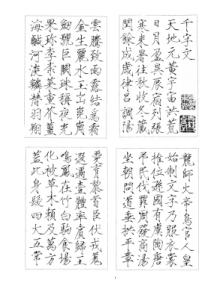 千字文
天地元黃宇宙洪荒
日月盈昃辰宿列張
寒來暑往秋收冬藏
閏餘成歲律呂調陽
雲騰致雨露結為霜
金生麗水玉出崑崗
劍號巨闕珠稱夜光
果珍李柰菜重芥薑
海鹹河淡鱗潛羽翔
龍師火帝鳥官人皇
始制文字乃服衣裳
推位讓國有虞陶唐
弔民伐罪周發商湯
坐朝問道垂拱平章
愛育黎首臣伏戎羌
遐邇壹體率賓歸王
鳴鳳在竹白駒食場
化被草木賴及萬方
蓋此身髮四大五常